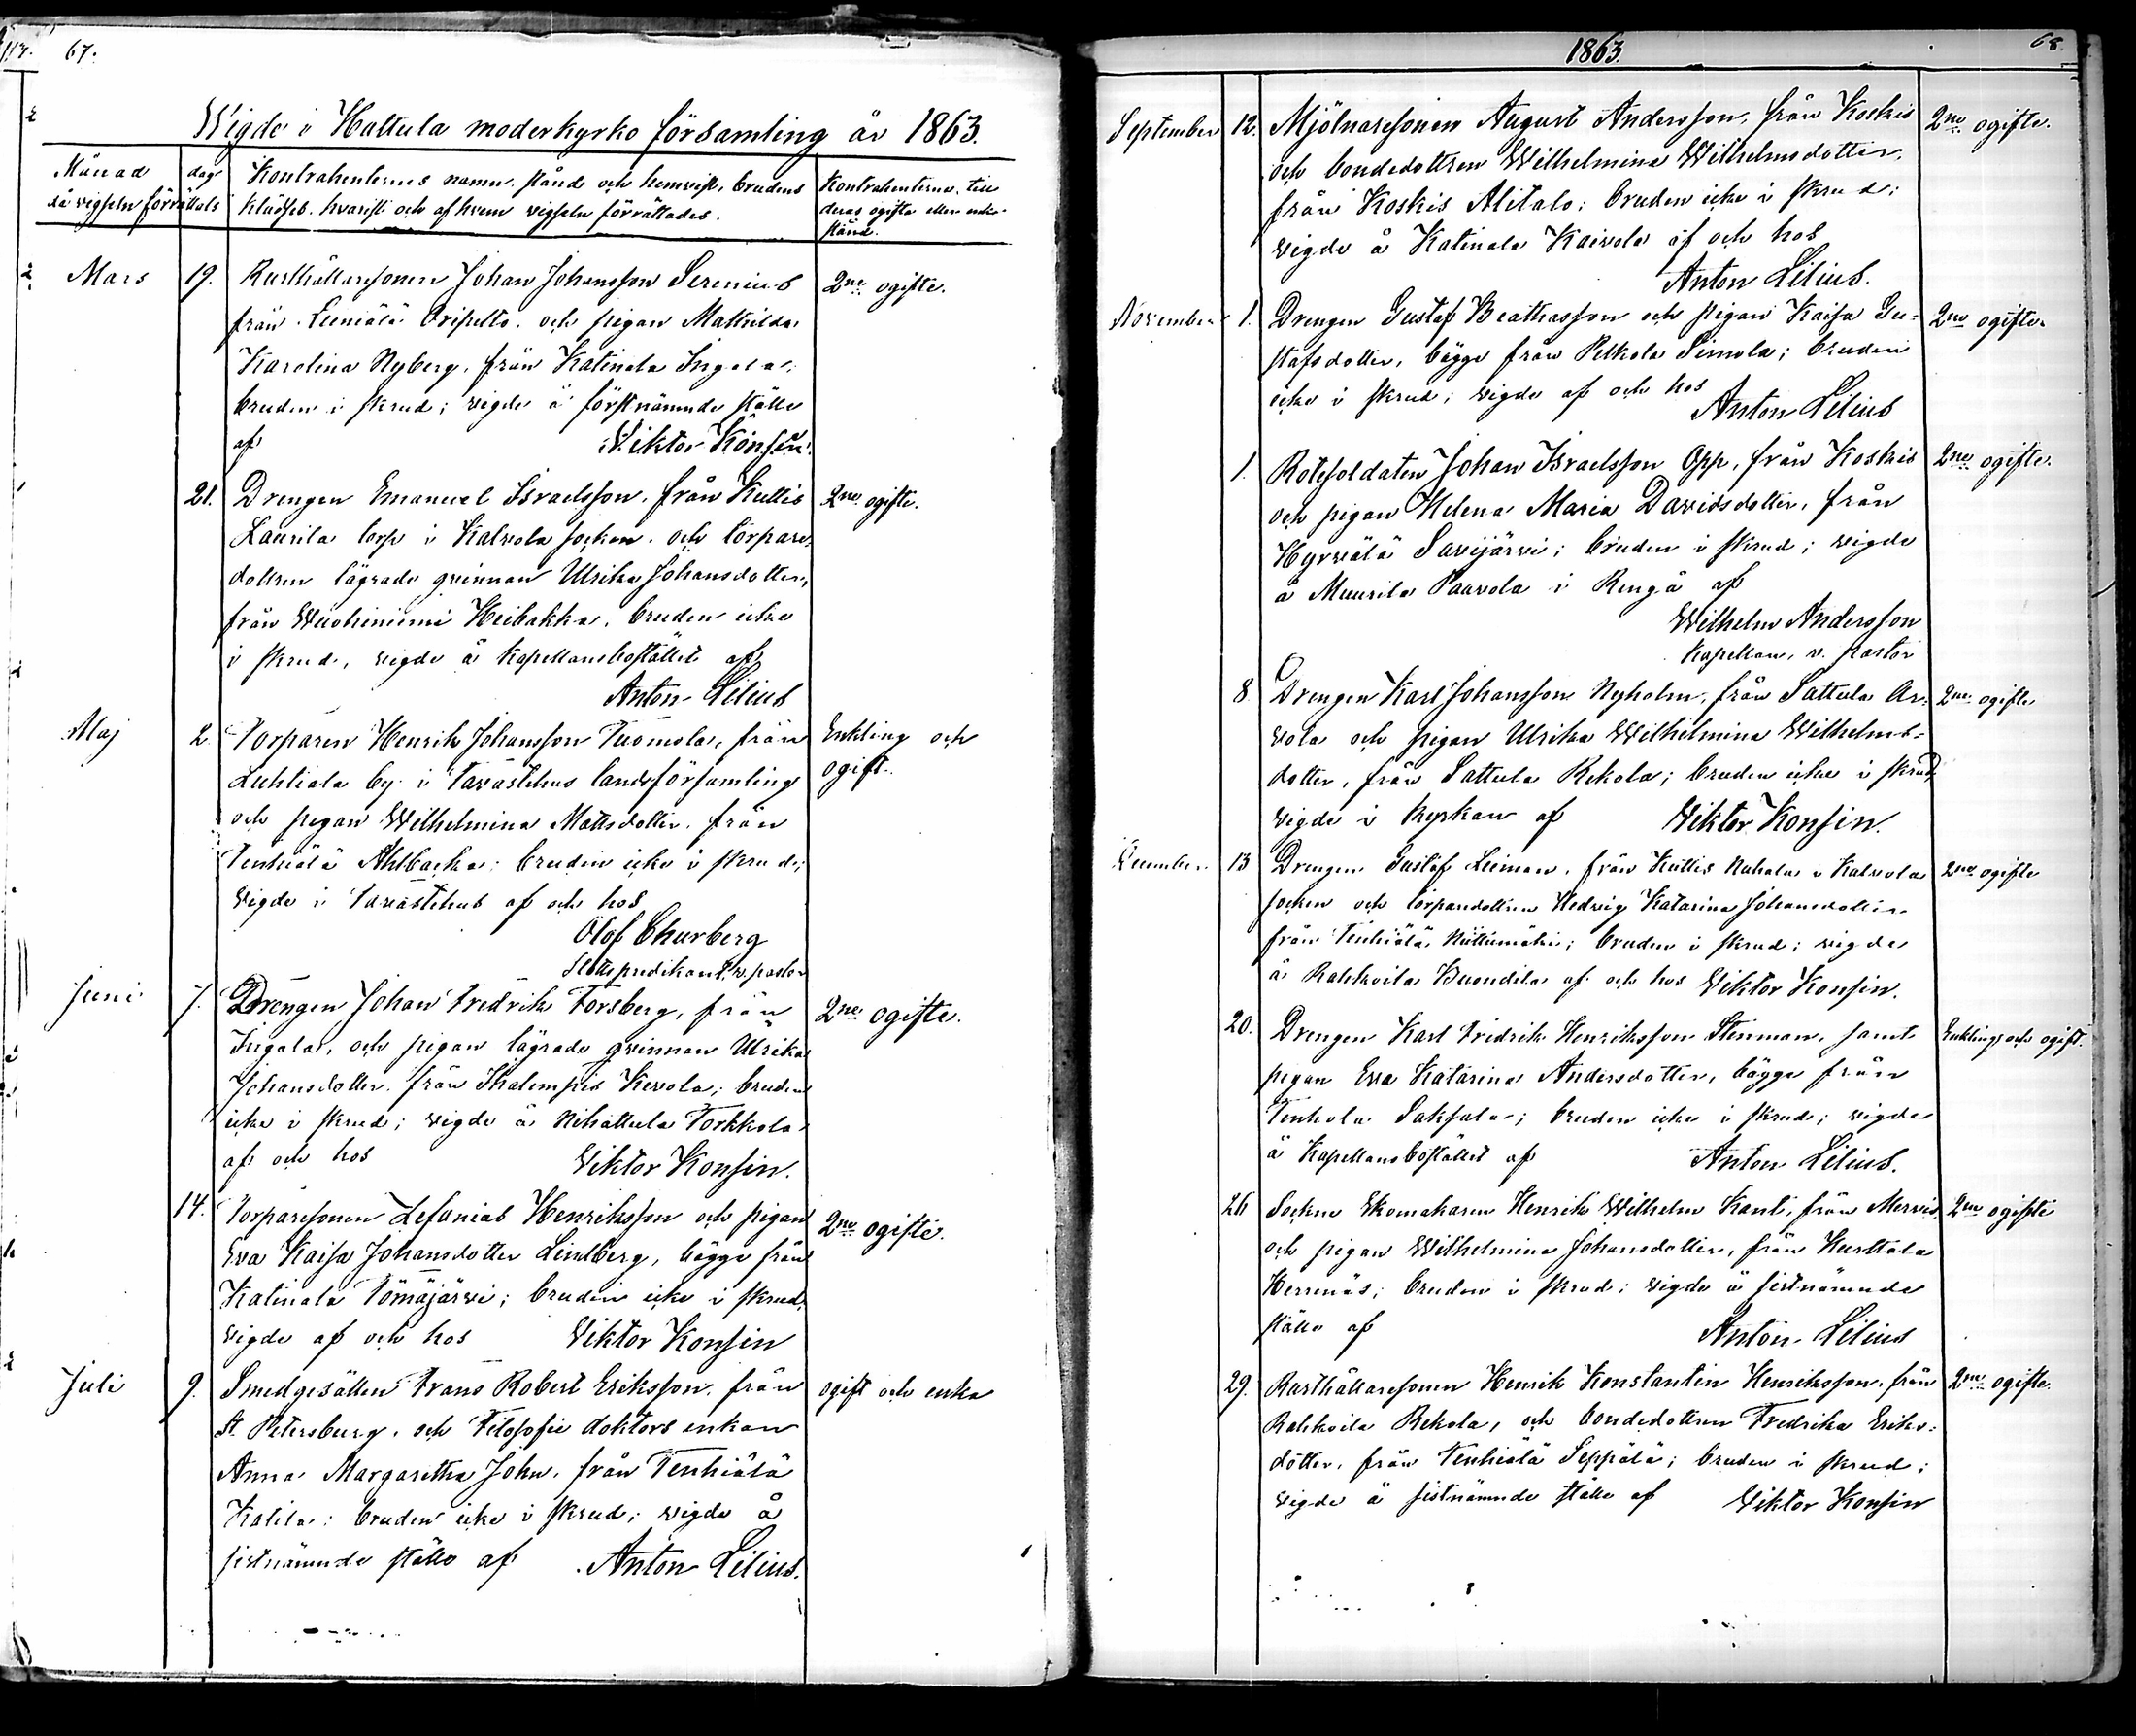 67.
Wigde i Hattula moderkyrko församling år 1863.
Månad då vigseln förrättats
dag
Kontrahenternes namn, stånd och hemvist, brudens
klädsel, hvarest och af hvem vigseln förrättades.
Kontrahenternas
deras ogifta eller enke-
stånd.
Mars 19. Rusthållaresonen Johan Johansson Serenius 2ne ogifte.
från Leiniälä Oripelto, och pigan Mathilda
Karolina Nyberg, från Katinala Ingala;
bruden i skrud; vigde å förstnämnde ställe
af Viktor Konsin.
21. Drengen Emanuel Israelsson, från Kuttis 2ne ogifte.
Laurila torp i Kalvola socken, och torpare-
dottren lägrade qvinnan Ulrika Johansdotter,
från Wuohiniemi Heibakka, bruden icke
i skrud, vigde å kapellansbostället af
Anton Lilius
Maj 2. Torparen Henrik Johansson Tuomola, från Enkling och
Luhtiala by i Tavastehus landsförsamling ogift.
och pigan Wilhelmina Mattsdotter, från
Tenhiälä Ahlbacka; bruden icke i skrud;
vigde i Tavastehus af och hos
Olof Churberg
Slottspredikant, v. pastor
Juni 7. Drengen Johan Fredrik Forsberg, från 2ne ogifte.
Ingala, och pigan lägrade qvinnan Ulrika
Johansdotter, från Ihalempis Kevola; bruden
icke i skrud; vigde å Nihattula Torkkola
af och hos Viktor Konsin.
14. Torparesonen Zefanias Henriksson och pigan 2ne ogifte.
Eva Kaisa Johansdotter Lindberg, bägge från
Katinala Tömäjärvi; bruden icke i skrud,
vigde af och hos Viktor Konsin
Juli 9. Smedgesällen Frans Robert Eriksson, från ogift och enka
St. Petersburg, och Filosofie doktors enkan
Anna Margaretha John, från Tenhiälä
Katila; bruden icke i skrud; vigde å
sistnämnde ställe af Anton Lilius.
1863. 68.
September 12. Mjölnaresonen August Andersson, från Koskis 2ne ogifte.
och bondedottren Wilhelmina Wilhelmsdotter,
från Koskis Alitalo; bruden icke i skrud;
vigde å Katinala Kaivola af och hos
Anton Lilius.
November 1. Drengen Gustaf Beathasson och pigan Kaisa Gu- 2ne ogifte.
stafsdotter, bägge från Pelkola Simola; bruden
icke i skrud; vigde af och hos
Anton Lilius
1. Rotesoldaten Johan Israelsson Opp, från Koskis 2ne ogifte.
och pigan Helena Maria Davidsdotter, från
Hyrvälä Savijärvi; bruden i skrud; vigde
å Muurila Paavola i Rengå af
Wilhelm Andersson
Kapellan, v. pastor
8. Drengen Karl Johansson Nyholm, från Sattula Ar- 2ne ogifte
vola och pigan Ulrika Wilhelmina Wilhelms-
dotter, från Sattula Rekola; bruden icke i skrud,
vigde i kyrkan af Viktor Konsin.
December 13 Drengen Gustaf Leiman, från Kuttis Nahala i Kalvola 2ne ogifte
socken och torparedottren Hedvig Katarina Johansdotter
från Tenhiälä Niittumäki; bruden i skrud; vigde
å Rahkoila Buondila af och hos Viktor Konsin.
20. Drengen Karl Fridrik Henriksson Stenman, samt Enkling och ogift.
pigan Eva Katarina Andersdotter, bägge från
Tenhola Saksala; bruden icke i skrud; vigde
å Kapellansbostället af Anton Lilius.
26 Sockne Skomakaren Henrik Wilhelm Kant, från Mervis, 2ne ogifte
och pigan Wilhelmina Johansdotter, från Hurttala
Herrenäs; bruden i skrud; vigde å sistnämnde
ställe af Anton Lilius
29. Rusthållaresonen Henrik Konstantin Henriksson, från 2ne ogifte.
Rahkoila Rekola, och bondedottren Fredrika Eriks-
dotter, från Tenhiälä Seppälä; bruden i skrud;
vigde å sistnämnde ställe af Viktor Konsin